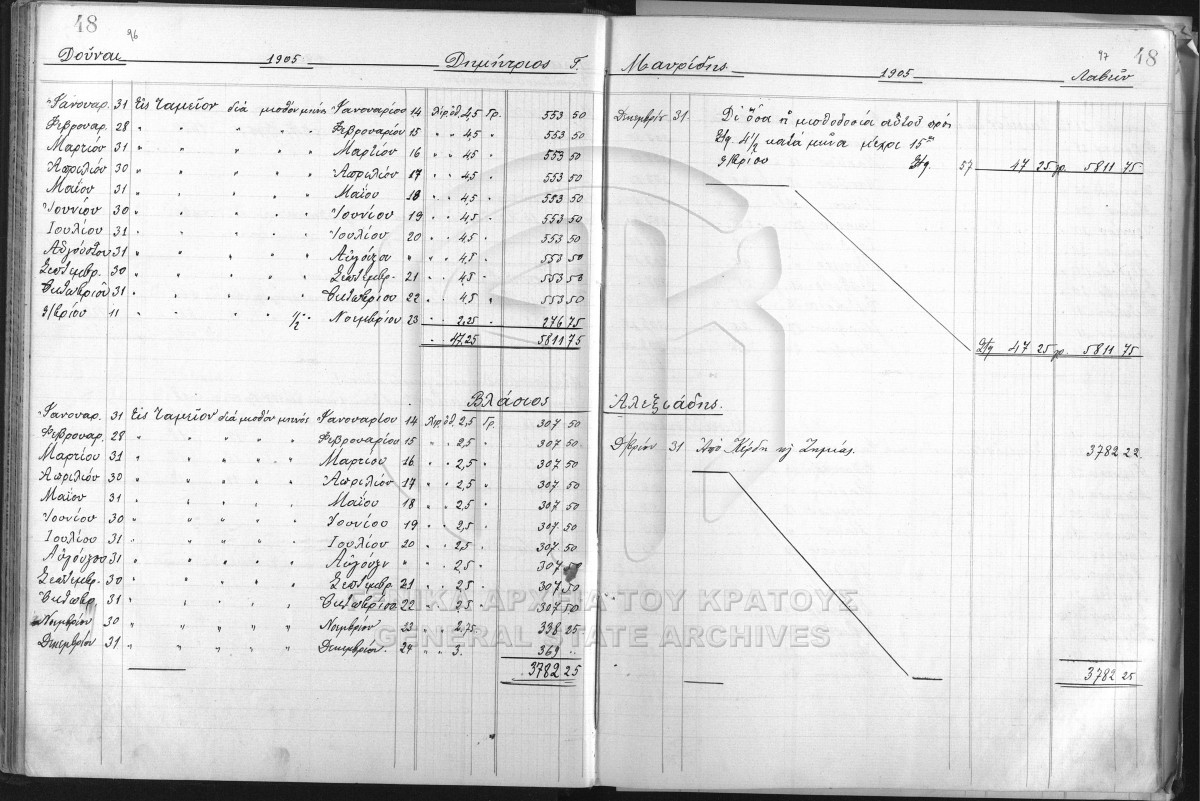 48
96
Δοῦναι 1905 Δημήτριος Γ.
Ἰανουαρ. 31 Εἰς Ταμεῖον διά μισθόν μηνός Ἰανουαρίου 14 Λιρ. ὀθ. 4,5 Γρ. 553 50
Φεβρουαρ. 28 " " " " Φεβρουαρίου 15 " " 4,5 " 553 50
Μαρτίου 31 " " " " Μαρτίου 16 " " 4,5 " 553 50
Ἀπριλίου 30 " " " " Ἀπριλίου 17 " " 4,5 " 553 50
Μαΐου 31 " " " " Μαΐου 18 " " 4,5 " 553 50
Ἰουνίου 30 " " " " Ἰουνίου 19 " " 4,5 " 553 50
Ἰουλίου 31 " " " " Ἰουλίου 20 " " 4,5 " 553 50
Αὐγούστου 31 " " " " " " " 4,5 " 553 50
Σεπτεμβρ. 30 " " " " Σεπτεμβρ. 21 " " 4,5 " 553 50
Ὀκτωβρίου 31 " " " " Ὀκτωβρίου 22 " " 4,5 " 553 50
9/βρίου 11 " " " 1/2 Νοεμβρίου 23 " " 2,25 " 276 75
" 47,25 5811 75
Βλάσιος
Ἰανουαρ. 31 Εἰς Ταμεῖον διά μισθόν μηνός Ἰανουαρίου 14 Λιρ. ὀθ. 2,5 Γρ. 307 50
Φεβρουαρ. 28 " " " " Φεβρουαρίου 15 " " 2,5 " 307 50
Μαρτίου 31 " " " " Μαρτίου 16 " " 2,5 " 307 50
Ἀπριλίου 30 " " " " Ἀπριλίου 17 " " 2,5 " 307 50
Μαΐου 31 " " " " Μαΐου 18 " " 2,5 " 307 50
Ἰουνίου 30 " " " " Ἰουνίου 19 " " 2,5 " 307 50
Ἰουλίου 31 " " " " Ἰουλίου 20 " " 2,5 " 307 50
31 " " " " " " " 2,5 " 307 50
Σεπτεμβρ. 30 " " " " Σεπτεμβρ. 21 " " 2,5 " 307 50
Ὀκτωβρ. 31 " " " " Ὀκτωβρίου 22 " " 2,5 " 307 50
Νοεμβρίου 30 " " " " Νοεμβρίου 23 " " 2,75 " 338 25
Δεκεμβρίου 31 " " " " Δεκεμβρίου 24 " " 3. 369 "
3782 25
97
48
Μαυρίδης 1905 Λαβεῖν
Δεκεμβρίου 31 Δι' ὅσα ἡ μισθοδοσία αὐτοῦ πρός
Λτq. 4 1/2 κατά μῆνα μέχρι 15ης
9/βρίου Λτq. 57 47 25 γρ. 5811 75
Λτq 47 25 γρ. 5811 75
Ἀλεξιάδης.
Δ/βρίου 31 Ἀπό Κέρδη κ/ Ζημίας. 3782 22
3782 25
ΓΕΝΙΚΑ ΑΡΧΕΙΑ ΤΟΥ ΚΡΑΤΟΥΣ
GENERAL STATE ARCHIVES